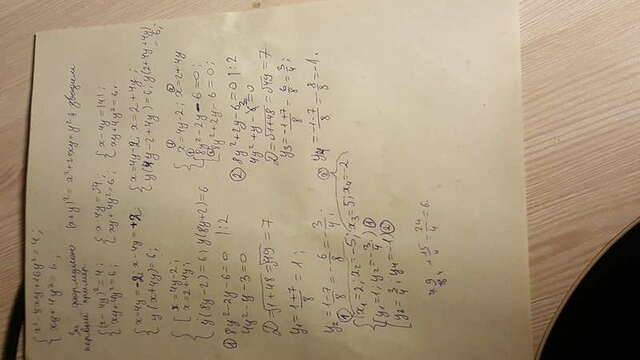 {x² - 8xy + 16y² = 4;
{xy + 4y² = 6;
За формулою (x+y)² = x² + 2xy + y² зводим
первый пример
{(x - 4y)² = 4; {x - 4y = √4; {x - 4y = |4|;
{xy + 4y² = 6; {xy + 4y² = 6; {xy + 4y² = 6;
{x - 4y = -2; x - 4y = +2 {x = 4y - 2 x = 2 + 4y;
{y(x + 4y) = 6; {y(4y - 2 + 4y) = 6; y(2 + 4y + 4y) = 6;
{[x = 4y - 2; {① x = 4y - 2; ② x = 2 + 4y
{[x = 2 + 4y; {① 8y² - 2y - 6 = 0;
{y(8y - 2) = 6; y(8y + 2) = 6 {② 8y² + 2y - 6 = 0;
① 8y² - 2y - 6 = 0 | : 2
4y² - y - 3 = 0
D = √1 + 48 = √49 = 7
y₁ = 1+7/8 = 1;
y₂ = 1-7/8 = -6/8 = -3/4;
② 8y² + 2y - 6 = 0 | : 2
4y² + y - 3 = 0
D = √1 + 48 = √49 = 7
y₃ = -1+7/8 = 6/8 = 3/4;
y₄ = -1-7/8 = -8/8 = -1.
① ②
{x₁ = 2; x₂ = -5; x₃ = 5; x₄ = -2
{[y₁ = 1; y₂ = -3/4;) ①
{[y₃ = 3/4; y₄ = -1) ②
+ 15/4 = 24/4 = 6.